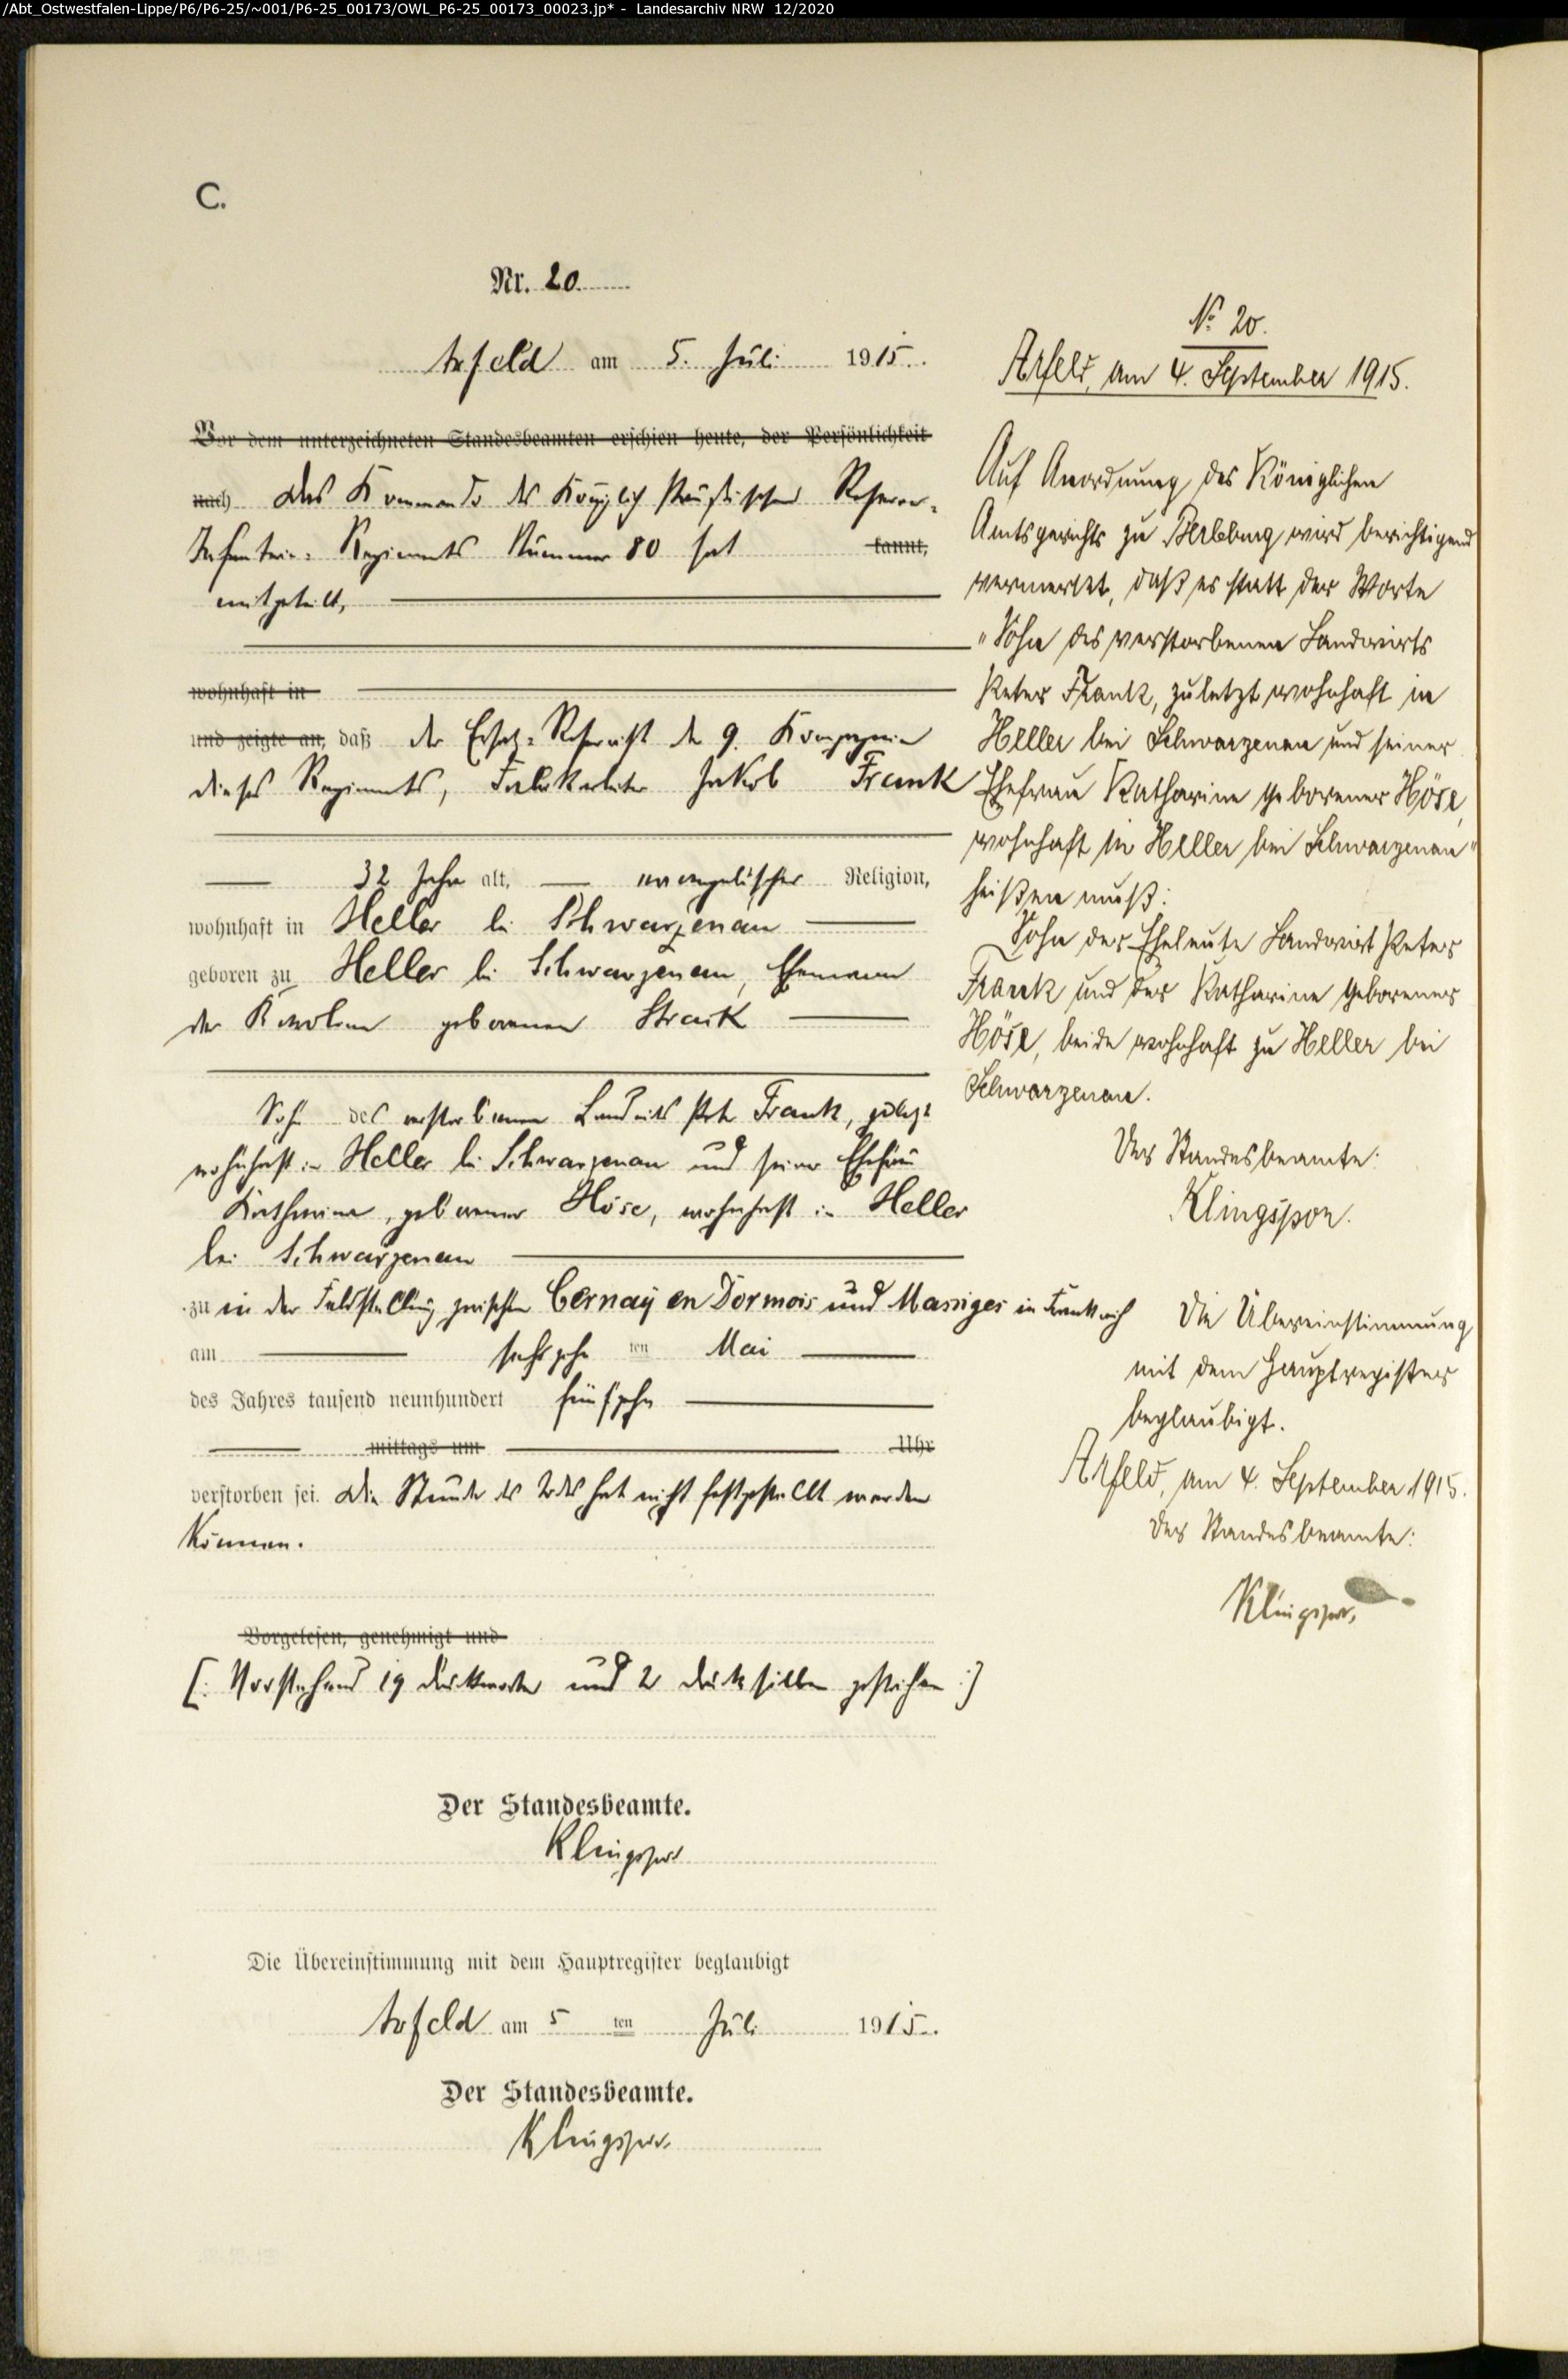 /Abt_Ostwestfalen-Lippe/P6/P6-25/~001/P6-25_00173/OWL_P6-25_00173_00023.jp* - Landesarchiv NRW 12/2020
C.
Nr. 20
Arfeld am 5. Juli 1915.
Vor dem unterzeichneten Standesbeamten erschien heute, der Persönlichkeit
nach Das Kommando des Königlich Preußischen Reserve-
Infanterie-Regiments Nummer 80 hat kannt,
mitgeteilt,
wohnhaft in
und zeigte an, daß der Ersatz-Reservist der 9. Kompagnie
dieses Regiments, Fabrikarbeiter Jakob Frank
32 Jahre alt, evangelischer Religion,
wohnhaft in Heller bei Schwarzenau
geboren zu Heller bei Schwarzenau, Ehemann
der Karoline geborenen Strack
Sohn des verstorbenen Landwirts Peter Frank, zuletzt
wohnhaft in Heller bei Schwarzenau und seiner Ehefrau
Katharina, geborener Höse, wohnhaft in Heller
bei Schwarzenau
zu in der Feldstellung zwischen Cernay en Dormois und Massiges in Frankreich
am sechszehn ten Mai
des Jahres tausend neunhundert fünfzehn
mittags um Uhr
verstorben sei. Die Stunde des Todes hat nicht festgestellt werden
können.
Vorgelesen, genehmigt und
[: Vorstehend 19 Druckworte und 2 Drucksilben gestrichen :]
Der Standesbeamte.
Klingspor
Die Übereinstimmung mit dem Hauptregister beglaubigt
Arfeld am 5 ten Juli 1915.
Der Standesbeamte.
Klingspor.
No 20.
Arfeld, am 4. September 1915.
Auf Anordnung des Königlichen
Amtsgerichts zu Berleburg wird berichtigend
vermerkt, daß es statt der Worte
"Sohn des verstorbenen Landwirts
Peter Frank, zuletzt wohnhaft in
Heller bei Schwarzenau und seiner
Ehefrau Katharina geborener Höse,
wohnhaft in Heller bei Schwarzenau"
heißen muß:
Sohn der Eheleute Landwirt Peter
Frank und der Katharina geborener
Höse, beide wohnhaft zu Heller bei
Schwarzenau.
Der Standesbeamte:
Klingspor.
Die Übereinstimmung
mit dem Hauptregister
beglaubigt.
Arfeld, am 4. September 1915.
Der Standesbeamte:
Klingspor.